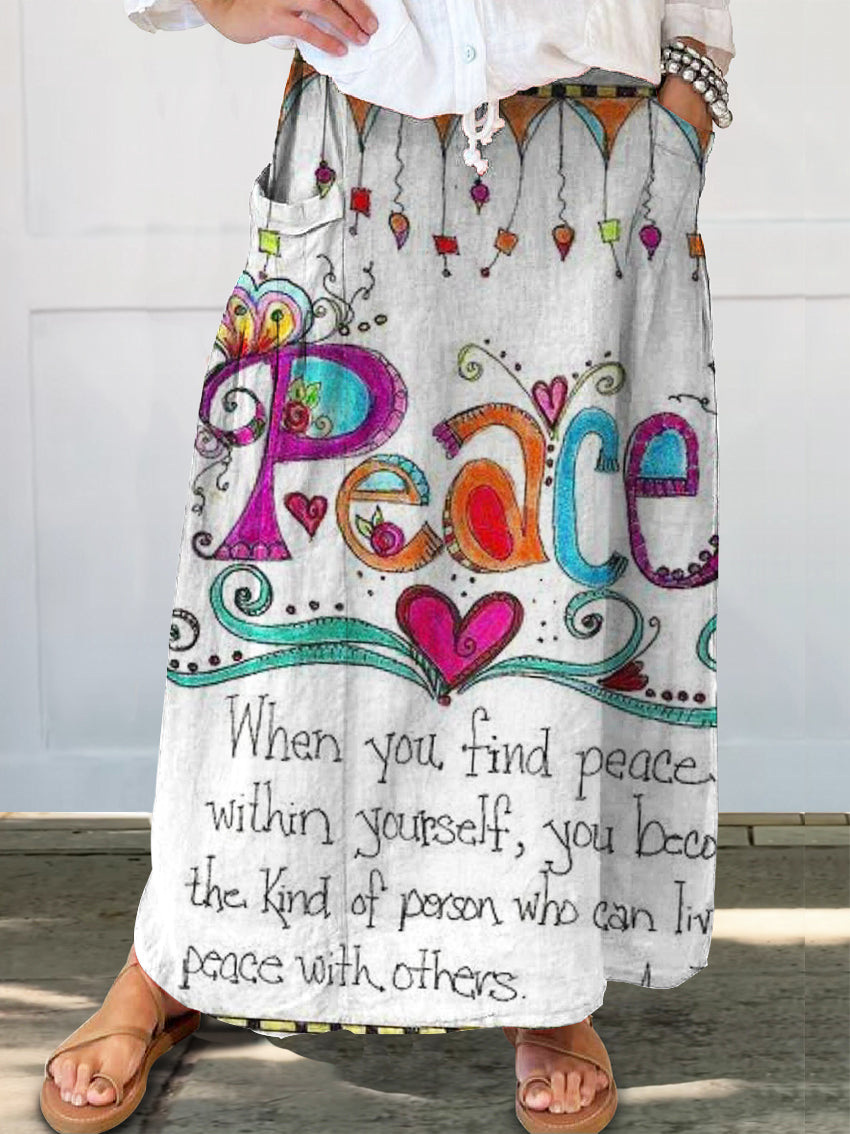 Peace
When you find peace
within yourself, you beco
the kind of person who can liv
peace with others.